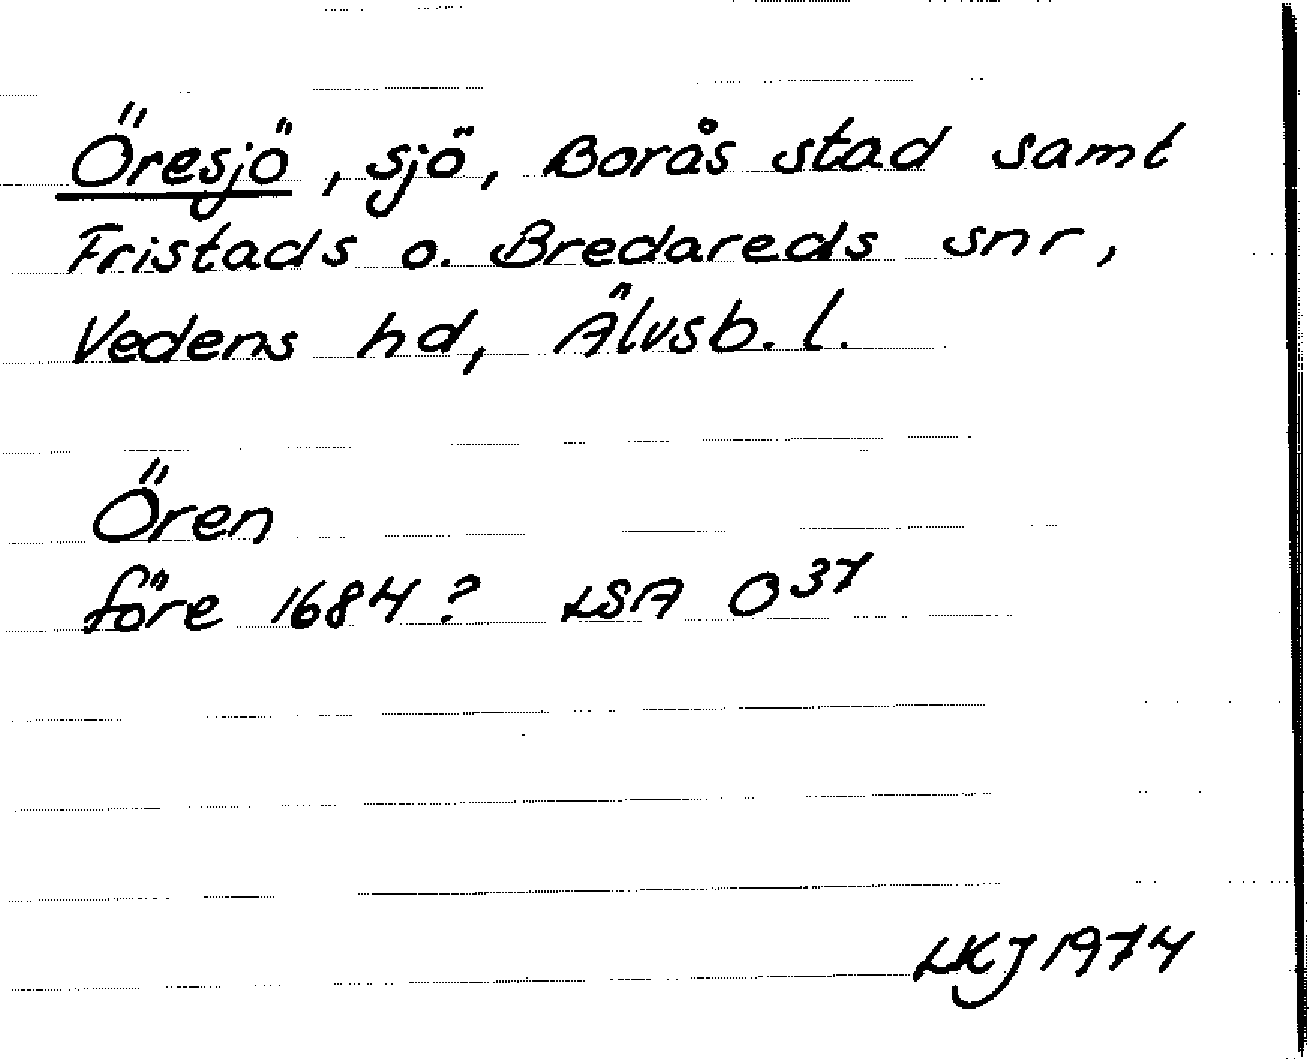 Öresjö, sjö, Borås stad samt
Fristads o. Bredareds snr,
Vedens hd, Älvsb. l.
Ören
före 1684? LSA O 37
LKJ 1974